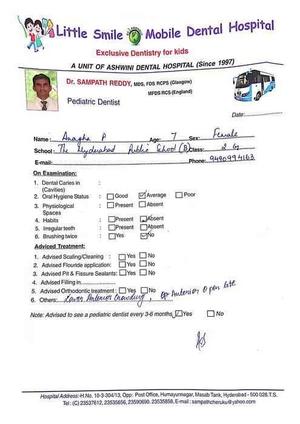 Little Smile Mobile Dental Hospital
Exclusive Dentistry for kids
A UNIT OF ASHWINI DENTAL HOSPITAL (Since 1997)
Dr. SAMPATH REDDY, MDS, FDS RCPS (Glasgow)
MFDS RCS (England)
Pediatric Dentist
Date:
Name: Anagha P Age: 7 Sex: Female
School: The Hyderabad Public School (B) Class: 2 G
E-mail: Phone: 9490994163
On Examination:
1. Dental Caries in :
(Cavities)
2. Oral Hygiene Status : Good Average Poor
3. Physiological : Present Absent
Spaces
4. Habits : Present Absent
5. Irregular teeth : Present Absent
6. Brushing twice : Yes No
Advised Treatment:
1. Advised Scaling/Cleaning : Yes No
2. Advised Flouride application: Yes No
3. Advised Pit & Fissure Sealants: Yes No
4. Advised Filling in
5. Advised Orthodontic treatment : Yes No
6. Others: Lower Anterior Crowding, Anterior Open bite
Note: Advised to see a pediatric dentist every 3-6 months Yes No
Hospital Address: H.No. 10-3-304/13, Opp: Post Office, Humayunagar, Masab Tank, Hyderabad - 500 028.T.S.
Tel: (C) 23537612, 23535656, 23590690. 23535858, E-mail: sampathcheruku@yahoo.com